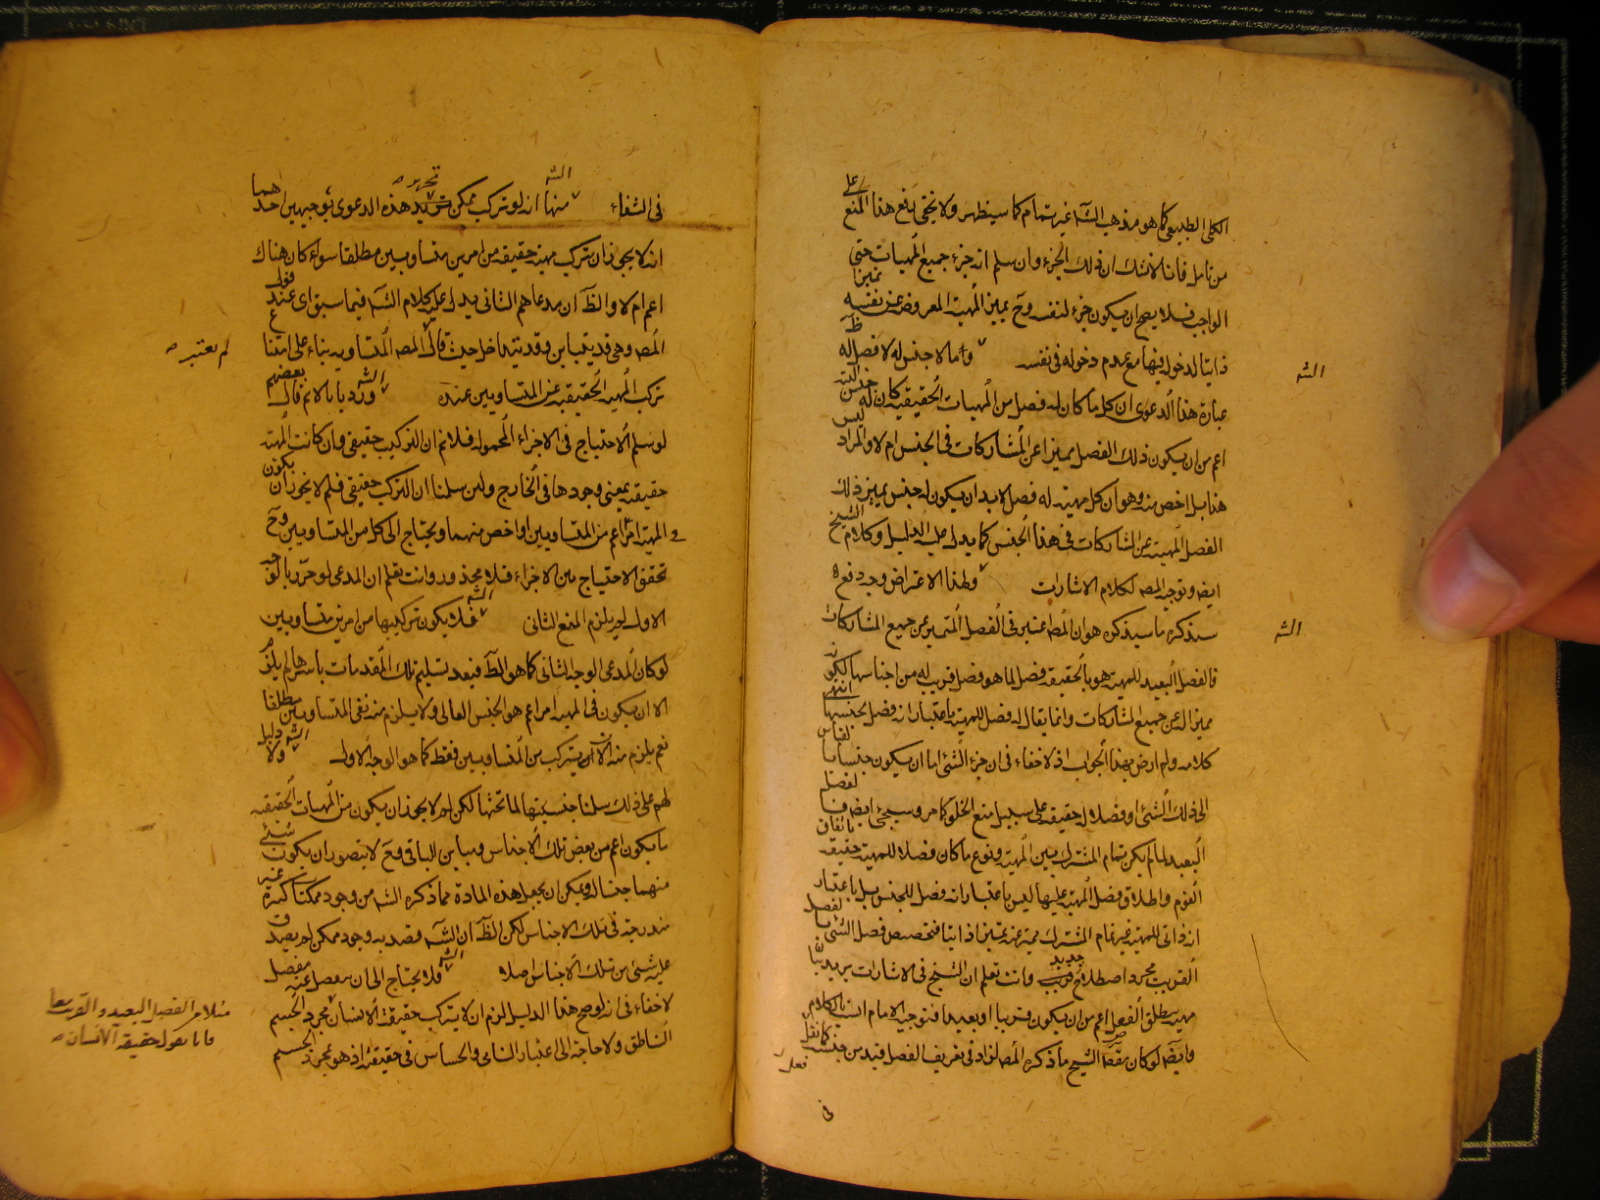 الكلى الطبيعى كما هو مذهب الشه غير تمام كما سيظهر ولا يخفى دفع هذا المنع على
من تامل فانا لا نشك ان ذلك الجزء وان سلم انه جزء جميع المهيات حتى
الواجب فلا يصح ان يكون جزء لنفسه وح يميز المهية المعروضة عن نفسه تميزا
ذاتيا لدخوله فيها مع عدم دخوله فى نفسه وما لا جنس له لا فصل له ظ
عبارة هذا الدعوى ان كل ما كان له فصل من المهيات الحقيقية كان له جنس البتة
اعم من ان يكون ذلك الفصل مميزا عن المشاركات فى الجنس ام لا والمراد ليس
هذا بل اخص منه وهو ان كل مهية له فصل لابد ان يكون له جنس يميز ذلك
الفصل المهية عن المشاركات فى هذا الجنس كما يدل عليه الدليل وكلام الشيخ
ايضا وتوجيه المص لكلام الاشارات ولهذا الاعتراض وجه دفع
الشه
سنذكره ما سيذكره هو ان المص اعتبر فى الفصل التميز عن جميع المشاركات
الشه
فالفصل البعيد للمهية هو بالحقيقة فصل لما هو فصل قريب له من اجناسها لكونه
مميزا له عن جميع المشاركات وانما يقال له فصل للمهية باعتبار انه فصل لجنسها انتهى
كلامه ولم ارض بهذا الجواب اذ لا خفاء فى ان جزء الشئ اما ان يكون جنسا
الى ذلك الشئ او فصلا له حقيقة على سبيل منع الخلو كما مر وسيجئ ايضا فالفصل
البعيد لما لم يكن تمام المشترك بين المهية ونوع ما كان فصلا للمهية حقيقة باتفاق
القوم واطلاق فصل المهية عليها ليس باعتبار انه فصل للجنس بل باعتبار
انه ذاتى للمهية غير تمام المشترك مميز عنه تميزا ذاتيا فتخصيص فصل الشئ بالفصل
القريب مجرد اصطلاح جديد وانت تعلم ان الشيخ فى الاشارات يريد بيان
مهية مطلق الفصل اعم من ان يكون قريبا او بعيدا فتوجيه الامام انسب بالكلام
وايضا لو كان مقصود الشيخ ما ذكره المص لزاد فى تعريف الفصل قيد من جنسه كما نقل
فعله
فى
فى الشفاء منها انه لو تركب ممكن هذه الدعوى بوجهين احدهما
الشه تحرير
انه لا يجوز ان تركب مهية حقيقة من امرين متساويين مطلقا سواء كان هناك
اعم ام لا والظ ان مدعاهم الثانى يدل عليه كلام الشه فيما سبق اى عند قول
المص وهى قد يتباين وقد يتداخل حيث قال المص المتساوية بناء على امتناع
لم يعتبر
تركب المهية الحقيقية عن المتساويين عنده ورد بانا لا نم قال بعضهم
الشه
لو سلم الاحتياج فى الاجزاء المحمولة فلا نم ان التركيب حقيقى وان كانت المهية
حقيقية بمعنى وجودها فى الخارج ولئن سلمنا ان التركب حقيقى فلم لا يجوز ان يكون
فى المهية امرا اعم من المتساويين او اخص منهما ويحتاج الى كل من المتساويين وح
تحقق الاحتياج بين الاجزاء فلا محذور وانت تعلم ان المدعى لو حرر بالوجه
الاول لم يلزم المنع الثانى فلا يكون تركيبها من امرين متساويين
الشه
لو كان المدعى الوجه الثانى كما هو الظ فبعد تسليم تلك المقدمات باسرها لم يلزم
الا ان يكون فى المهية امر اعم هو الجنس العالى ولا يلزم منه نفى المتساويين مطلقا
نعم يلزم منه الا يتركب من المتساويين فقط كما هو الوجه الاول ولا دليل
الشه
لهم على ذلك سلمنا جنسيتها لما تحتها لكن لم لا يجوز ان يكون من المهيات الحقيقية
ما يكون اعم من بعض تلك الاجناس ومباين للباقى وح لا يتصور ان يكون شئ
منهما جنسا له ويمكن ان يجعل هذه المادة مما ذكره الشه من وجود ممكنات كثيرة غير
مندرجة فى تلك الاجناس لكن الظ ان الشه قصد به وجود ممكن لم يصدق
عليه شئ من تلك الاجناس اصلا فلا يحتاج الى ان يفصل عنه بفصل
الشه
لا خفاء فى انه لو صح هذا الدليل لزم ان لا يتركب حقيقة الانسان مجرد الجسم
الناطق ولا حاجة الى اعتبار النامى والحساس فى حقيقة اذ هو بمجرد الجسم
مثلا من الفصل البعيد والقريب معا
فانا نقول حقيقة الانسان